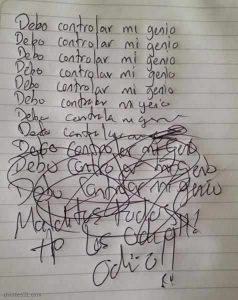 Debo controlar mi genio
Debo controlar mi genio
Debo controlar mi genio
Debo controlar mi genio
Debo controlar mi genio
Debo controlar mi genio
Debo controlar mi genio
Debo
Debo
Debo controlar mi genio
Debo controlar mi genio
Debo controlar mi genio
Malditos todos
los odio!!!
odio!!
chistes21.com